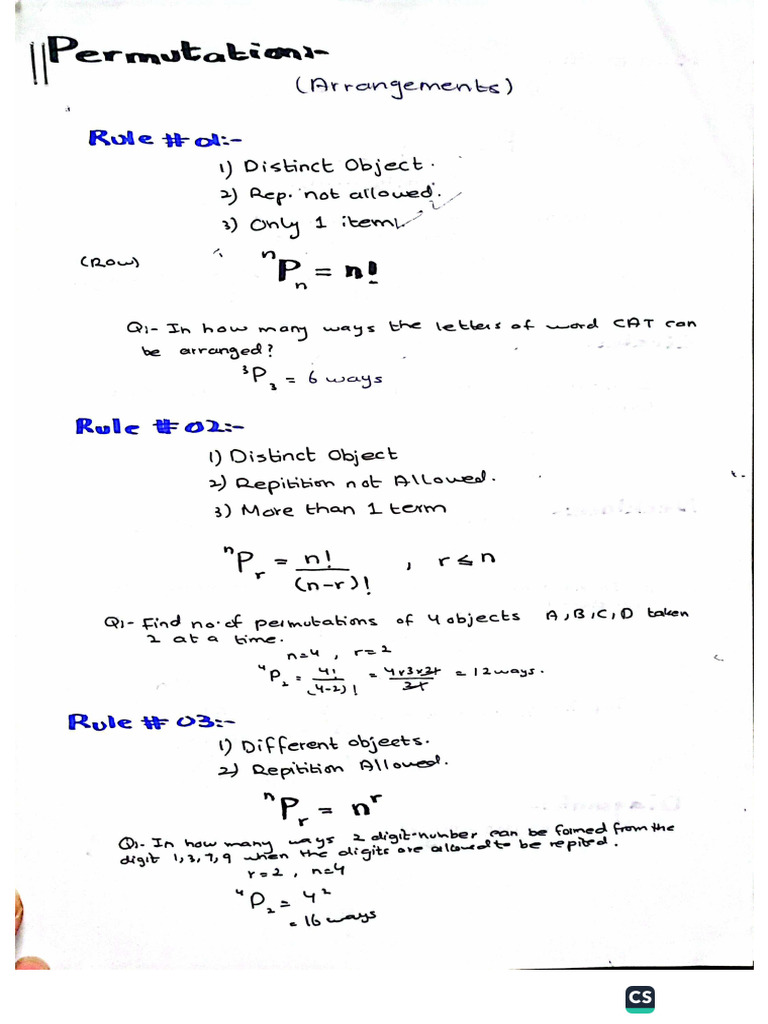 Permutation:-
(Arrangements)
Rule # 01:-
1) Distinct Object.
2) Rep. not allowed.
3) Only 1 item.
(Row)
ⁿPₙ = n!
Q:- In how many ways the letters of word CAT can
be arranged?
³P₃ = 6 ways
Rule # 02:-
1) Distinct Object
2) Repitition not Allowed.
3) More than 1 term
ⁿPᵣ = n!/(n-r)! , r ≤ n
Q:- Find no. of permutations of 4 objects A, B, C, D taken
2 at a time.
n=4 , r=2
⁴P₂ = 4!/(4-2)! = 4x3x2!/2! = 12 ways.
Rule # 03:-
1) Different objects.
2) Repitition Allowed.
ⁿPᵣ = nʳ
Q:- In how many ways 2 digit number can be formed from the
digit 1, 3, 7, 9 when the digits are allowed to be repited.
r=2 , n=4
⁴P₂ = 4²
= 16 ways
CS